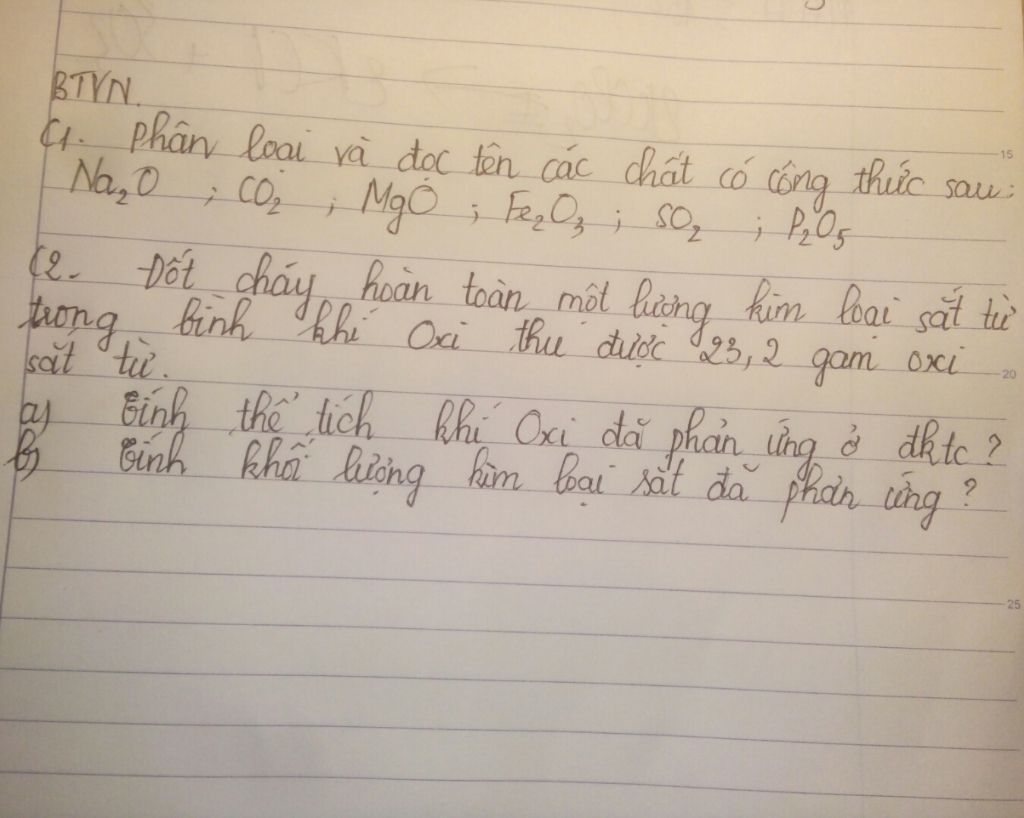 BTVN.
C1. Phân loại và đọc tên các chất có công thức sau:
Na₂O ; CO₂ ; MgO ; Fe₂O₃ ; SO₂ ; P₂O₅
C2. Đốt cháy hoàn toàn một lượng kim loại sắt từ
trong bình khí Oxi thu được 23,2 gam oxi
sắt từ.
a) Tính thể tích khí Oxi đã phản ứng ở đktc?
b) Tính khối lượng kim loại sắt đã phản ứng?
15
20
25